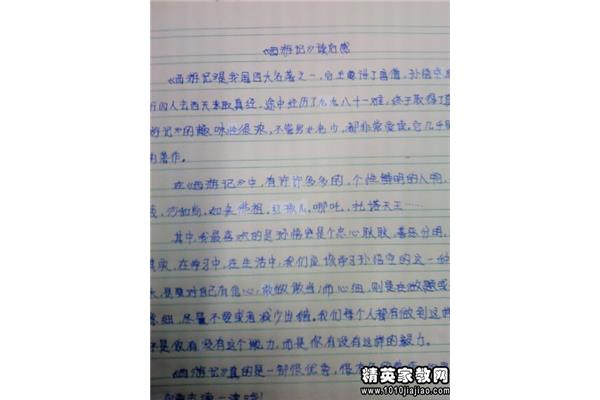 《西游记》读后感
《西游记》是我国四大名著之一,它主要讲了唐僧、孙悟空
四人去西天求取真经,途中经历了九九八十一难,终于取得了
游记》的趣味性很浓,不管男女老少,都非常爱读。它几乎
的著作。
在《西游记》中,有许许多多的,个性鲜明的人物,
如来佛祖,红孩儿,哪吒,托塔天王……
其中,我最喜欢的是孙悟空是个忠心耿耿,喜恶分明,
其实,在学习中,在生活中,我们应该学习孙悟空的这一
是要对自己有信心,敢做敢当;而心细,则是在做题或
细,尽量不要或者减少出错。我们每个人都有做到这
不是你有没有这个能力,而是你有没有这样的毅力。
《西游记》真的是一部很优秀,很
读一读吧!
精英家教网
www.1010jiajiao.com